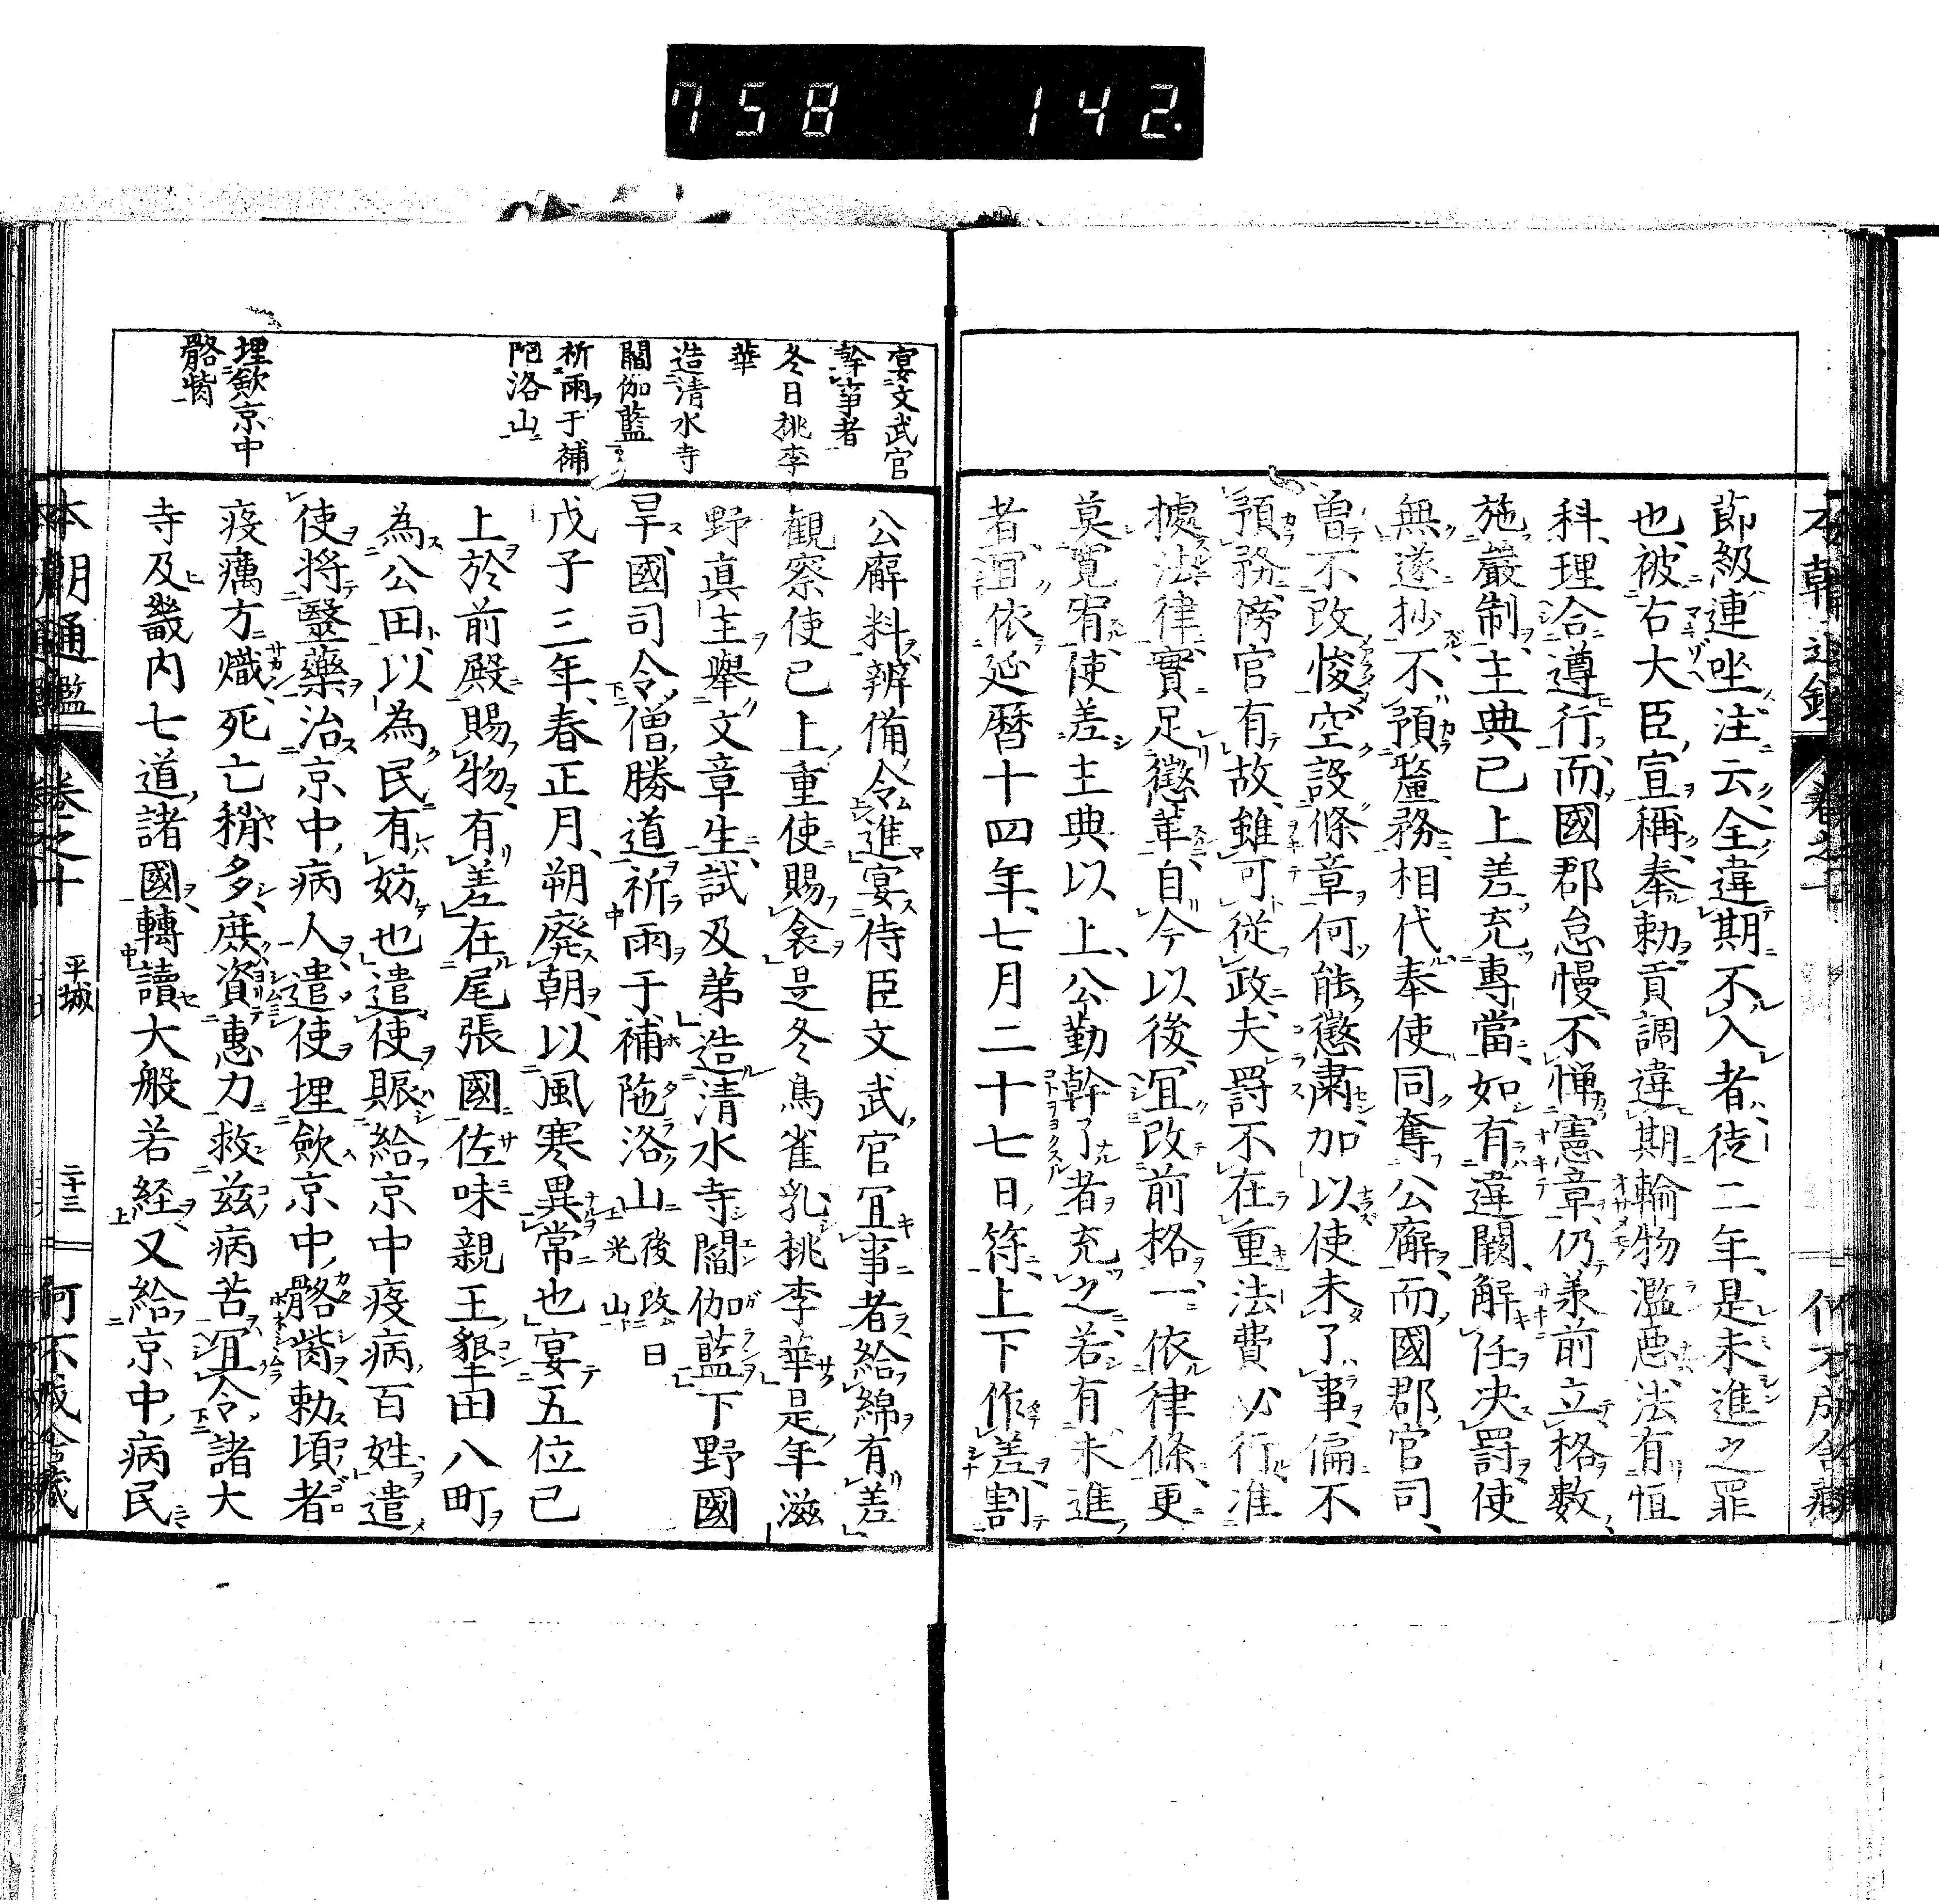 758 142.
節級連坐注云全違期不入者徒二年是未進之罪
也被右大臣宣稱奉勅貢調違期輸物濫悪法有恒
科理合遵行而國郡怠慢不憚憲章仍羕前立格數
施嚴制主典已上差充專當如有違闕解任决罰使
無遂抄不預釐務相代奉使同奪公廨而國郡官司
曽不改悛空設條章何能懲肅加以使未了事偏不
預務傍官有故雖可從政夫罸不在重法費以行准
據法律實足懲革自今以後冝改前格一依律條更
莫寛宥使差主典以上公勤幹了者充之若有未進
者冝依延暦十四年七月二十七日符上下作差割
宴文武官
幹事者
冬日桃李
華
造清水寺
閣伽藍
祈雨于補
陁洛山
埋歛京中
骼胔
公廨料辨備令進宴侍臣文武官冝事者給綿有差
觀察使已上重使賜衾是冬鳥雀乳桃李華是年滋
野真主舉文章生試及弟造清水寺閣伽藍下野國
旱國司令僧勝道祈雨于補陁洛山後改日光山
戊子三年春正月朔廢朝以風寒異常也宴五位已
上於前殿賜物有差在尾張國佐味親王墾田八町
為公田以為民有妨也遣使賑給京中疫病百姓遣
使將毉藥治京中病人遣使埋歛京中骼胔勅頃者
疫癘方熾死亡稍多庶資惠力救兹病苦冝令諸大
寺及畿内七道諸國轉讀大般若経又給京中病民
本朝通鑑 卷之十 平城 二十三